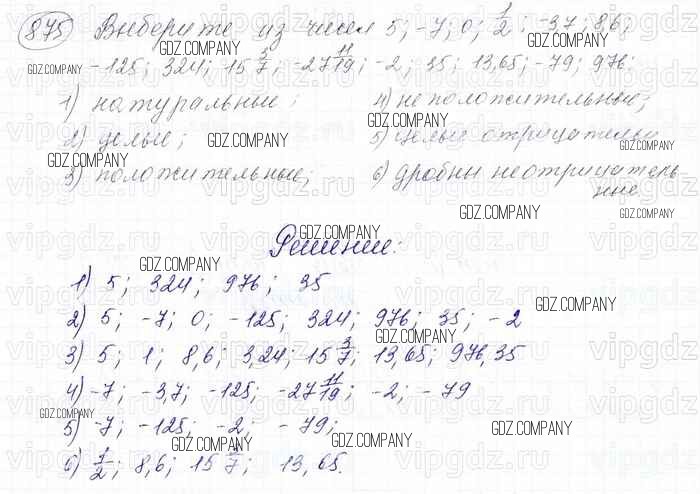 875 Выберите из чисел 5; -7; 0; 1/2; -3,7; 8,6;
-125; 324; 15 3/7; -27 11/19; -2; 35; 13,65; -79; 976:
1) натуральные; 4) неположительные;
2) целые; 5) целые отрицательн
3) положительные; 6) дробны неотрицатель
ные.
Решение:
1) 5; 324; 976; 35
2) 5; -7; 0; -125; 324; 976; 35; -2
3) 5; 1; 8,6; 3,24; 15 3/7; 13,65; 976,35
4) -7; -3,7; -125; -27 11/19; -2; -79
5) -7; -125; -2; -79;
6) 1/2; 8,6; 15 3/7; 13,65.
GDZ.COMPANY
vipgdz.ru